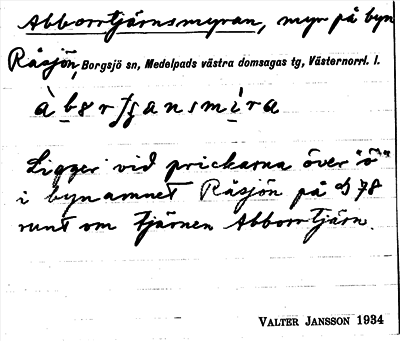 Abborrtjärnsmyran, myr på byn
Råsjön, Borgsjö sn, Medelpads västra domsagas tg, Västernorrl. l.
Ligger vid prickarna över "ö"
i bynamnet Råsjön på
runt om tjärnen Abborrtjärn.
VALTER JANSSON 1934